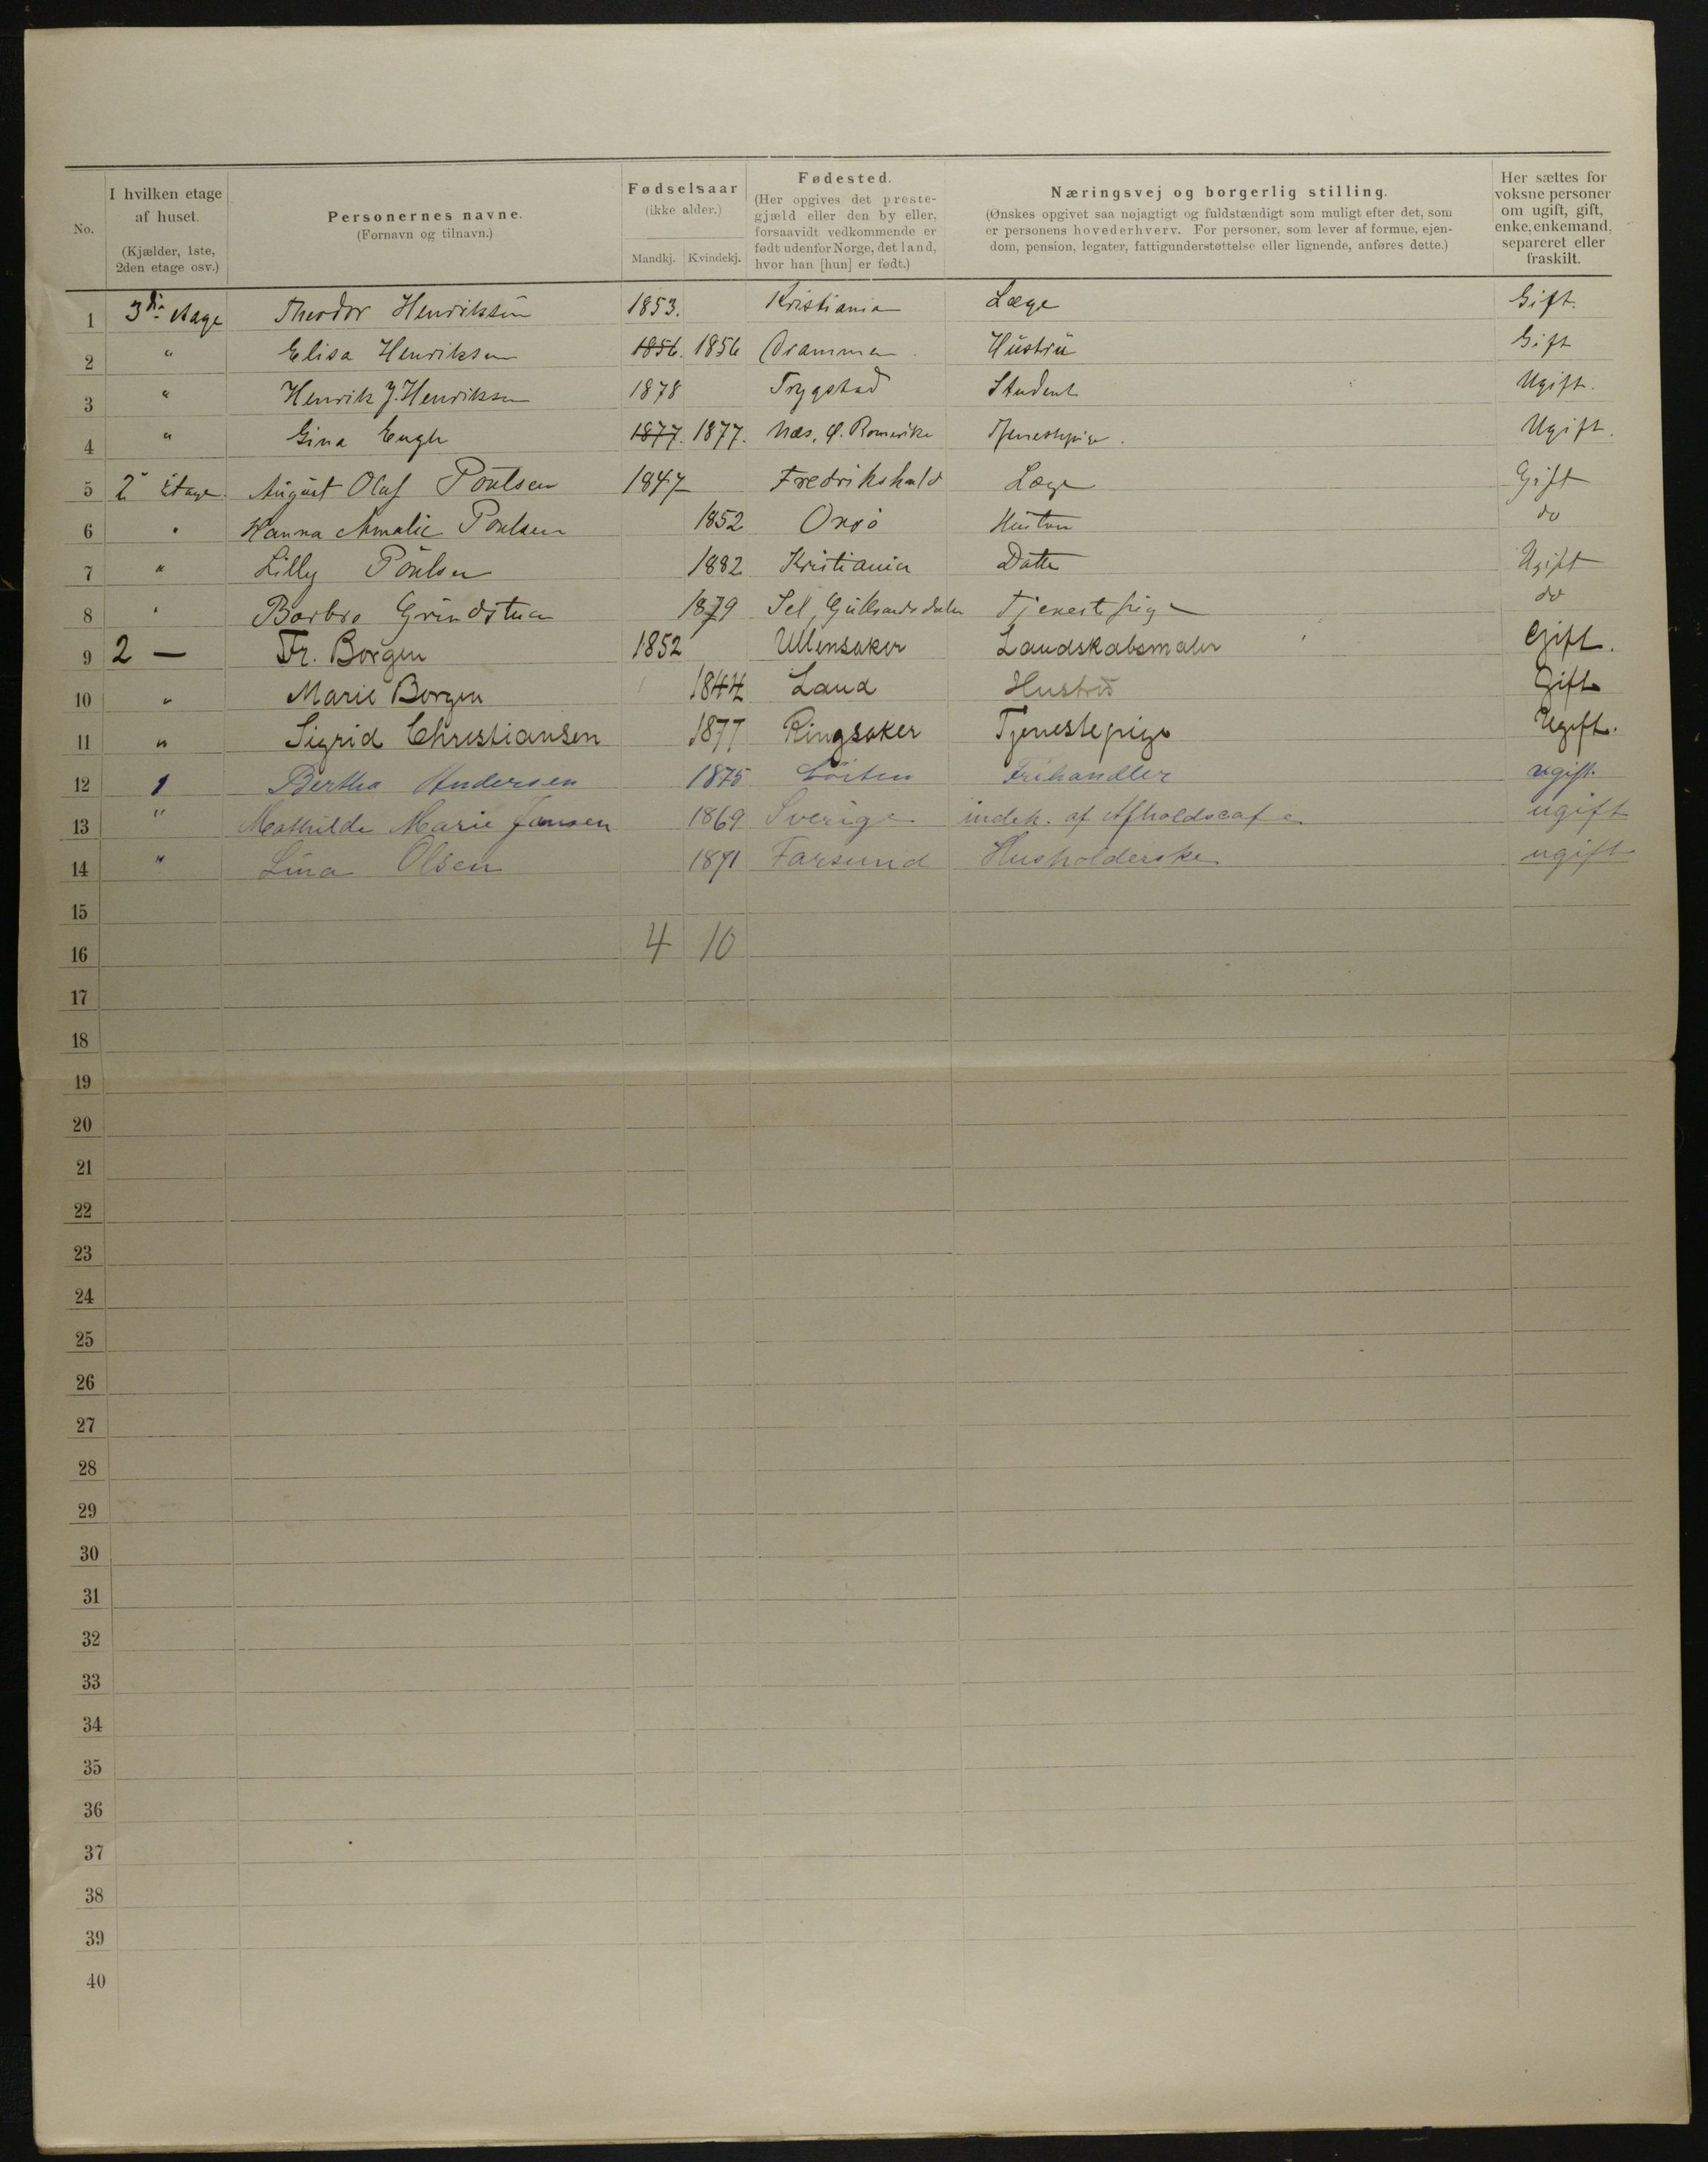 No.
I hvilken etage af huset. (Kjælder, 1ste, 2den etage osv.)
Personernes navne. (Fornavn og tilnavn.)
Fødselsaar (ikke alder.) Mandkj. Kvindekj.
Fødested. (Her opgives det prestegjæld eller den by eller, forsaavidt vedkommende er født udenfor Norge, det land, hvor han [hun] er født.)
Næringsvej og borgerlig stilling. (Ønskes opgivet saa nøjagtigt og fuldstændigt som muligt efter det, som er personens hovederhverv. For personer, som lever af formue, ejendom, pension, legater, fattigunderstøttelse eller lignende, anføres dette.)
Her sættes for voksne personer om ugift, gift, enke, enkemand, separeret eller fraskilt.
1 3die etage Theodor Henriksen 1853. Kristiania Læge Gift.
2 " Elisa Henriksen 1856. 1856 Drammen. Hustru Gift
3 " Henrik J. Henriksen 1878 Trygstad Student Ugift.
4 " Gina Engh 1877. 1877. Næs, Ø. Romerike Tjenestepige. Ugift.
5 2 Etage. August Olaf Poulsen 1847 Fredrikshald Læge Gift
6 " Hanna Amalie Poulsen 1852 Onsø Hustru do
7 " Lilly Poulsen 1882 Kristiania Datter Ugift
8 " Barbro Grindstuen 1879 Sel, Gulbrandsdalen Tjenestepige do
9 2 — Fr. Borgen 1852 Ullensaker Landskabsmaler Gift.
10 " Marie Borgen 1844 Land Hustru Gift
11 " Sigrid Christiansen 1877 Ringsaker Tjenestepige Ugift.
12 1 Bertha Andersen 1875 Löiten Frihandler ugift.
13 " Mathilde Marie Jansen 1869 Sverige indeh. af Afholdscafe ugift
14 " Lina Olsen 1871 Farsund Husholderske ugift
15
16 4 10
17
18
19
20
21
22
23
24
25
26
27
28
29
30
31
32
33
34
35
36
37
38
39
40